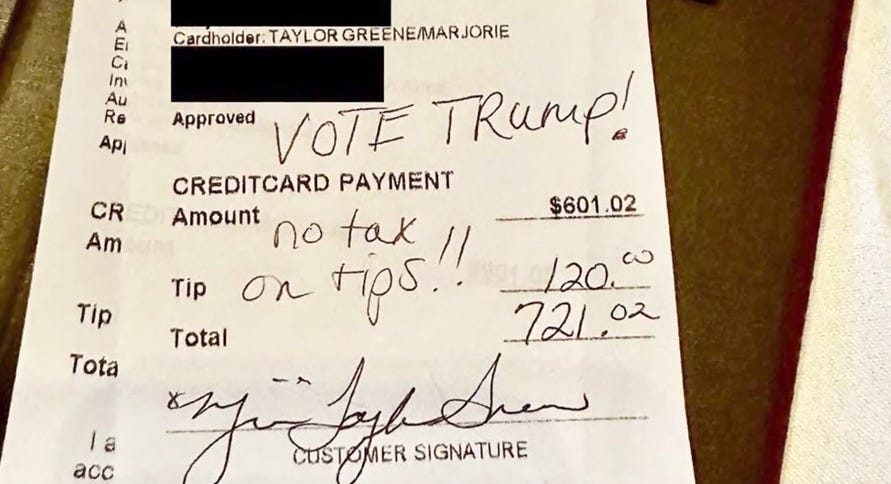 Cardholder: TAYLOR GREENE/MARJORIE
Approved
VOTE TRump!
CREDITCARD PAYMENT
Amount $601.02
no tax
on tips!!
Tip 120.00
Total 721.02
CUSTOMER SIGNATURE
A
Ei
Ci
Inv
Au
Re
Ap
CR
Am
Tip
Tota
I a
acc